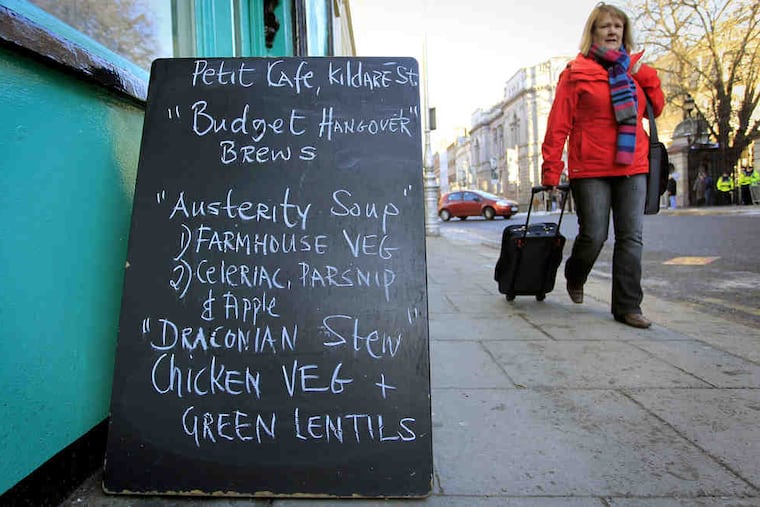 Petit Cafe, Kildare St
"Budget HANGOVER"
BREWS
"Austerity Soup"
1) FARMHOUSE VEG
2) Celeriac, PARSNIP
& Apple
"DRACONIAN Stew"
CHICKEN VEG +
GREEN LENTILS